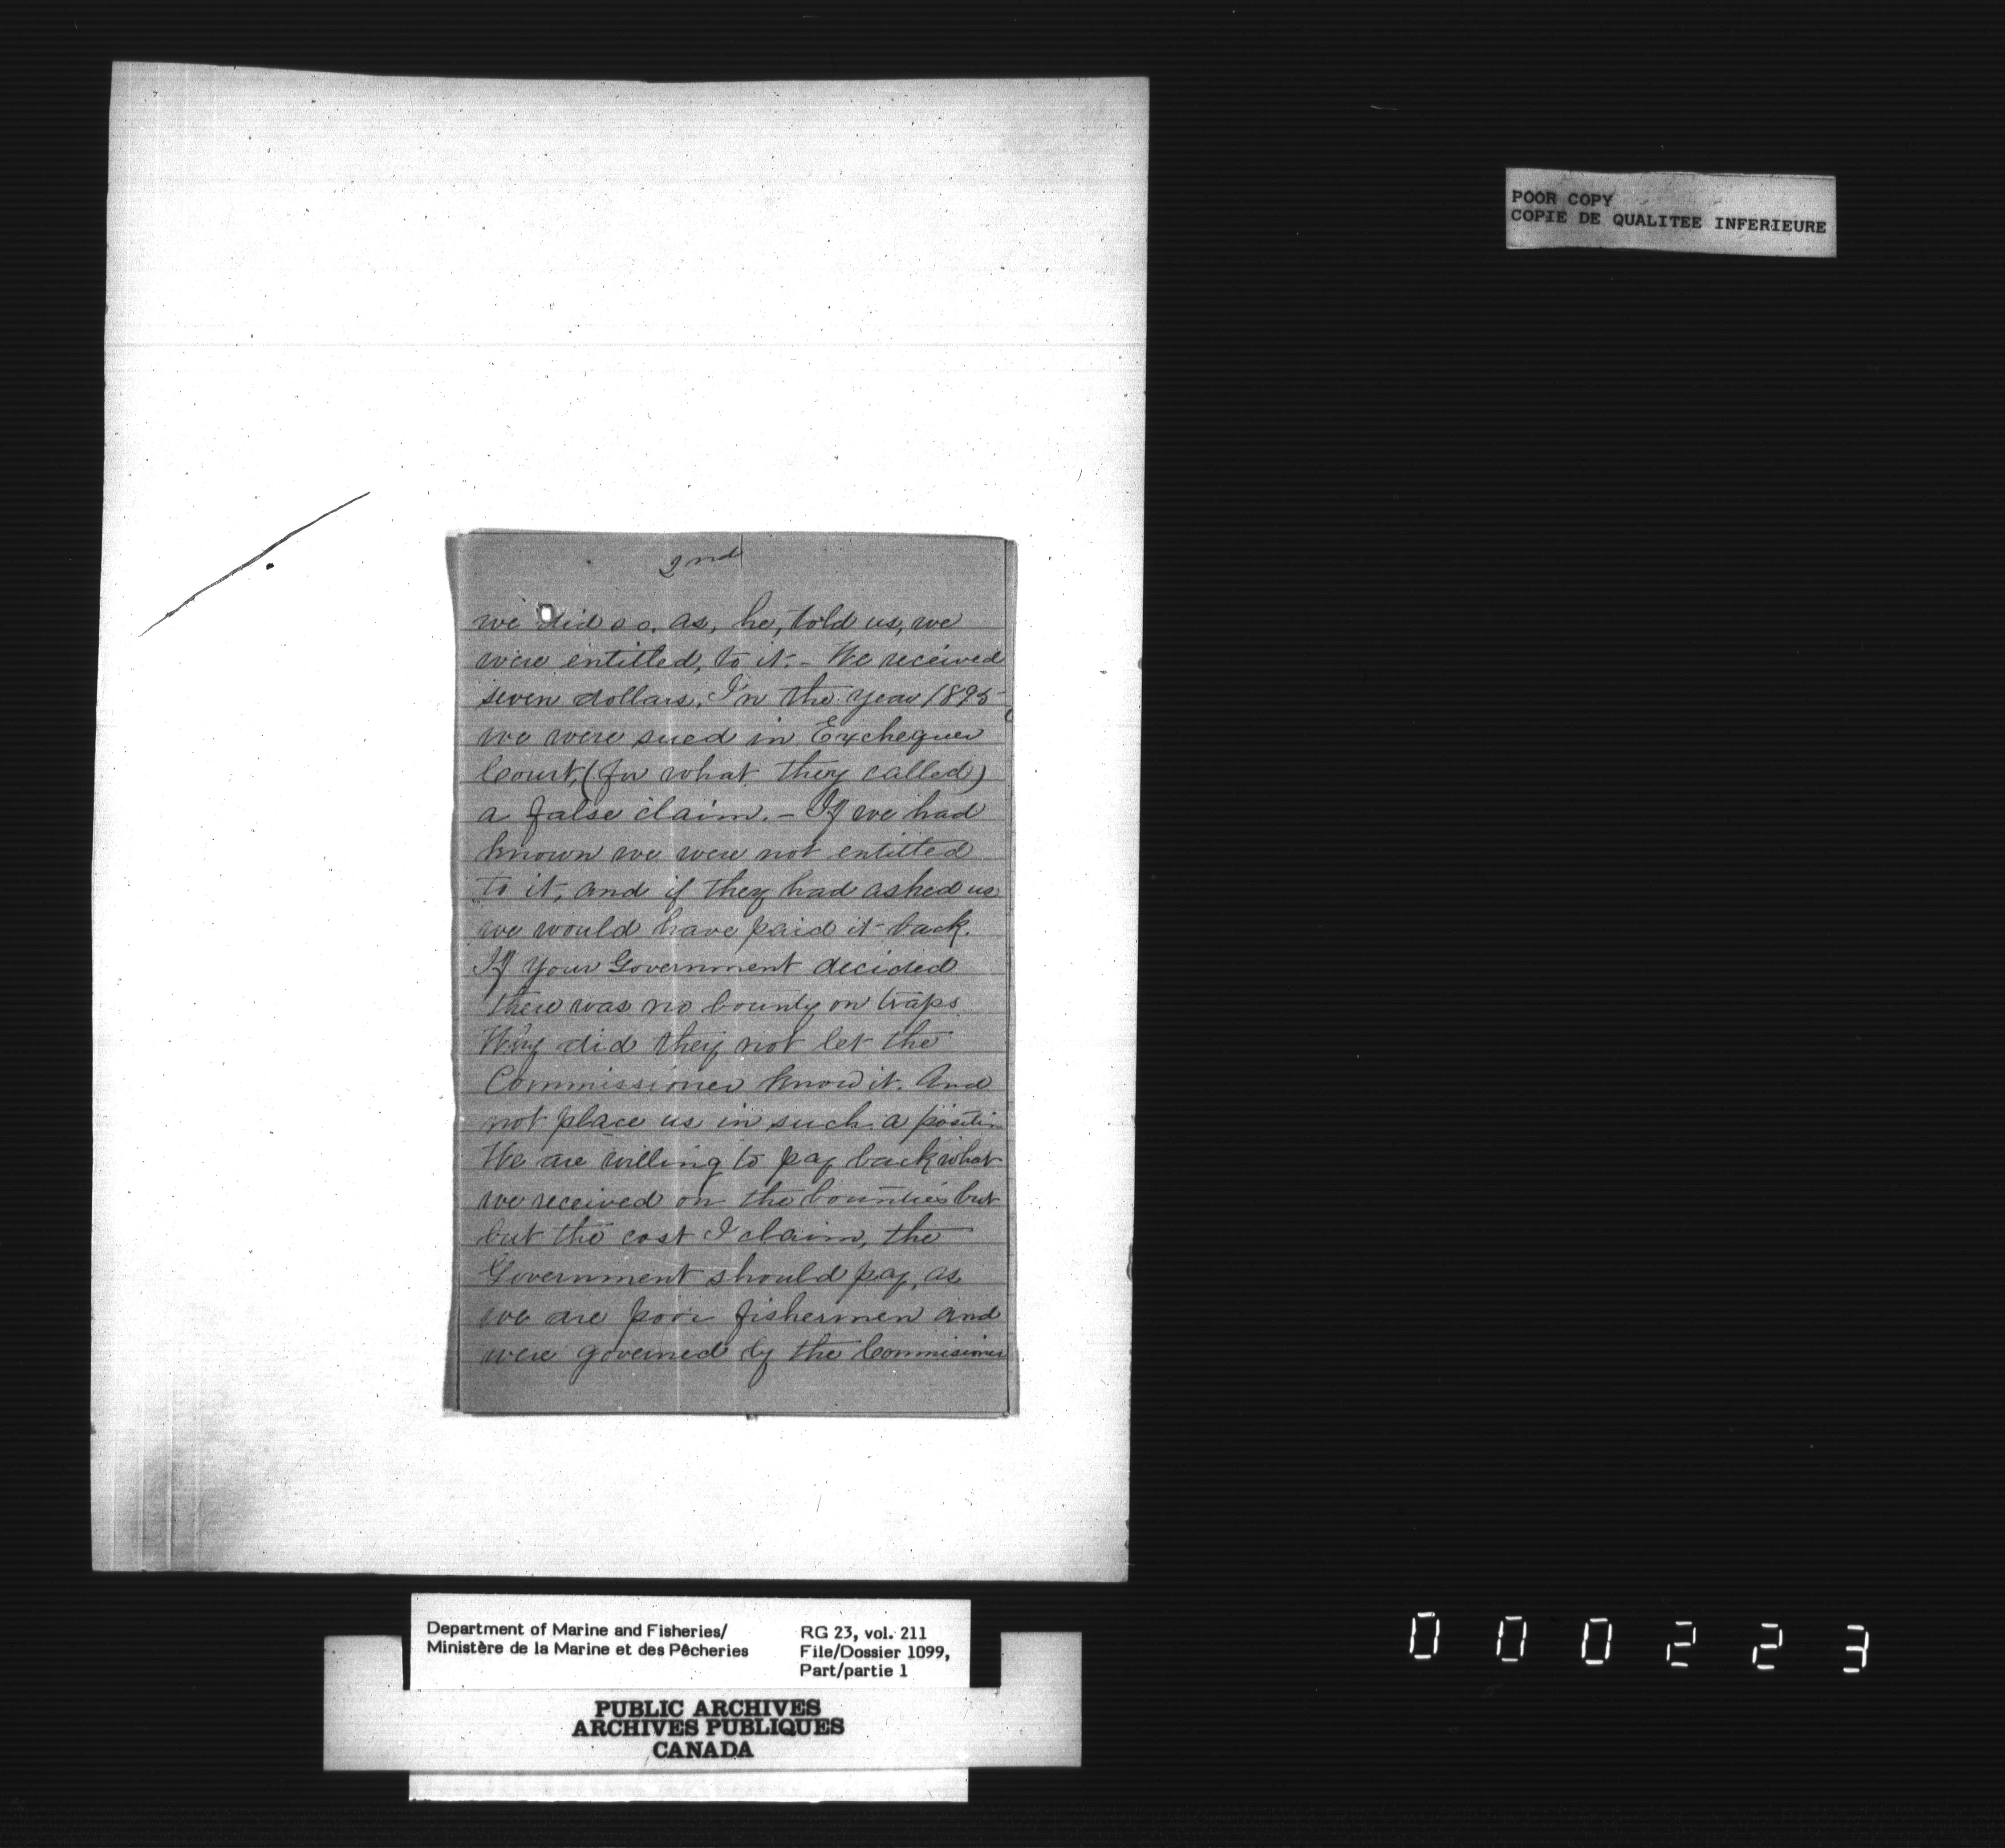 POOR COPY
COPIE DE QUALITEE INFERIEURE
2nd
we did so, as, he, told us, we
were entitled, to it. - We received
seven dollars, In the year 1895
we were sued in Exchequer
Court, (for what they called)
a false claim. - If we had
known we were not entitled
to it, and if they had asked us
we would have paid it back.
If your Government decided
there was no bounty on traps
Why did they not let the
Commissioner know it. And
not place us in such a position
We are willing to pay back what
we received on the bounties but
but the cost I claim, the
Government should pay, as
we are poor fishermen and
were governed by the Commisioner
Department of Marine and Fisheries/
Ministère de la Marine et des Pêcheries
RG 23, vol. 211
File/Dossier 1099,
Part/partie 1
PUBLIC ARCHIVES
ARCHIVES PUBLIQUES
CANADA
000223